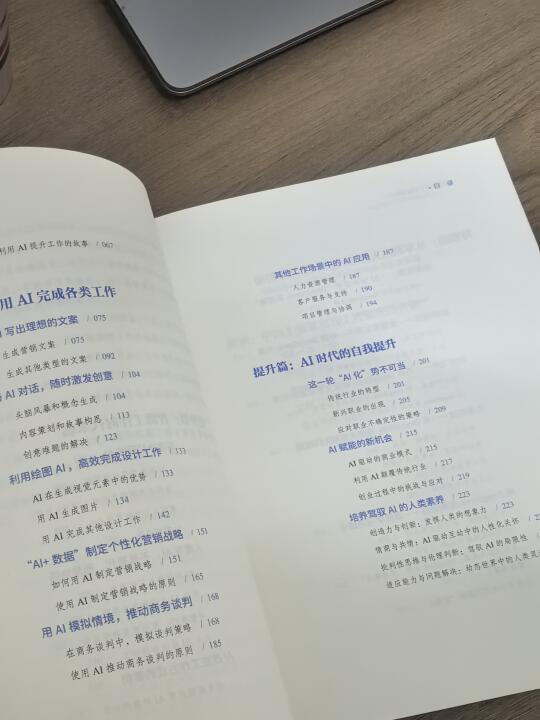 利用 AI 提升工作的故事 / 067
用 AI 完成各类工作
写出理想的文案 / 075
生成营销文案 / 075
生成其他类型的文案 / 092
AI 对话，随时激发创意 / 104
头脑风暴和概念生成 / 104
内容策划和故事构思 / 113
创意难题的解决 / 123
利用绘图 AI，高效完成设计工作 / 133
AI 在生成视觉元素中的优势 / 133
用 AI 生成图片 / 134
用 AI 完成其他设计工作 / 142
“AI+ 数据”制定个性化营销战略 / 151
如何用 AI 制定营销战略 / 151
使用 AI 制定营销战略的原则 / 165
用 AI 模拟情境，推动商务谈判 / 168
在商务谈判中，模拟谈判策略 / 168
使用 AI 推动商务谈判的原则 / 185
· 目 录
其他工作场景中的 AI 应用 / 187
人力资源管理 / 187
客户服务与支持 / 190
项目管理与协调 / 194
提升篇：AI 时代的自我提升
这一轮“AI 化”势不可当 / 201
传统行业的转型 / 201
新兴职业的出现 / 205
应对职业不确定性的策略 / 209
AI 赋能的新机会 / 215
AI 驱动的商业模式 / 215
利用 AI 颠覆传统行业 / 217
创业过程中的挑战与应对 / 219
培养驾驭 AI 的人类素养 / 223
创造力与创新：发挥人类的想象力 / 223
情商与共情：AI 驱动互动中的人性化关怀
批判性思维与伦理判断：驾驭 AI 的局限性
适应能力与问题解决：动态世界中的人类灵